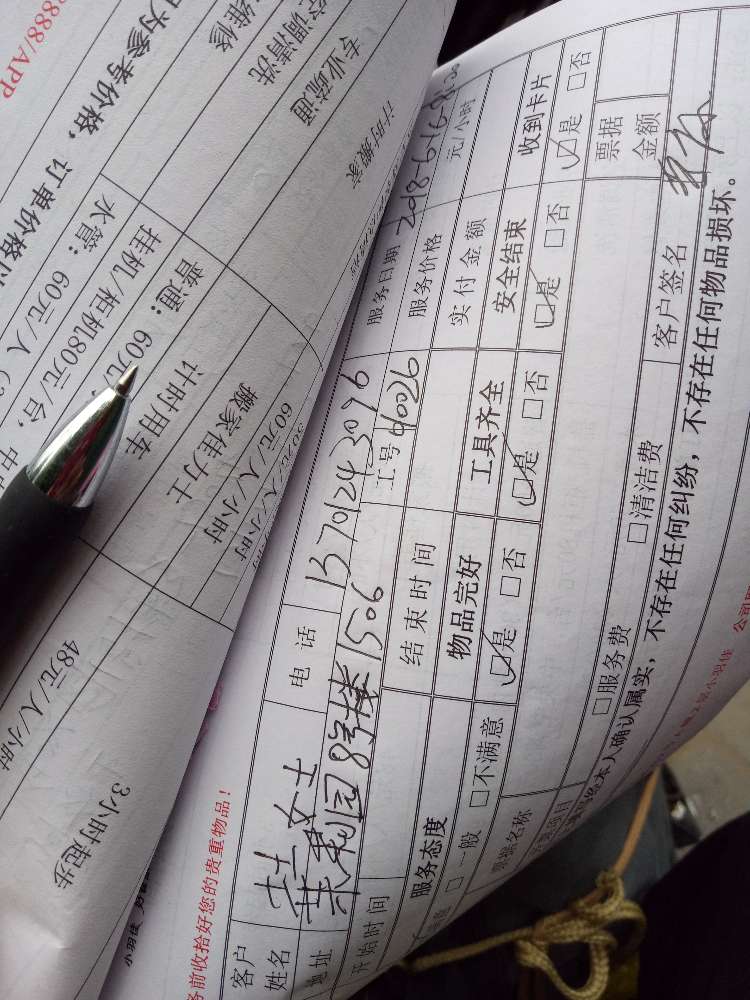 8888/APP
为参考价格，订单价格以
维修
空调清洗
专业疏通
计时搬家
水管：60元/人
挂机/柜机80元/台，中
普通：60元
计时用车
搬家佳力士
60元/人/小时
48元/人/小时
3小时起步
务前收拾好您的贵重物品！
客户姓名 女士 电话 13701243096 服务日期 2018-6-16
地址 莱利园8号楼1506 工号 9026 服务价格 元/小时
开始时间 结束时间 实付金额
服务态度 物品完好 工具齐全 安全结束 收到卡片
□一般 □不满意 □是 □否 □是 □否 □是 □否 □是 □否
票据名称 □服务费 □清洁费 票据金额
客户签名
本人确认属实，不存在任何纠纷，不存在任何物品损坏。